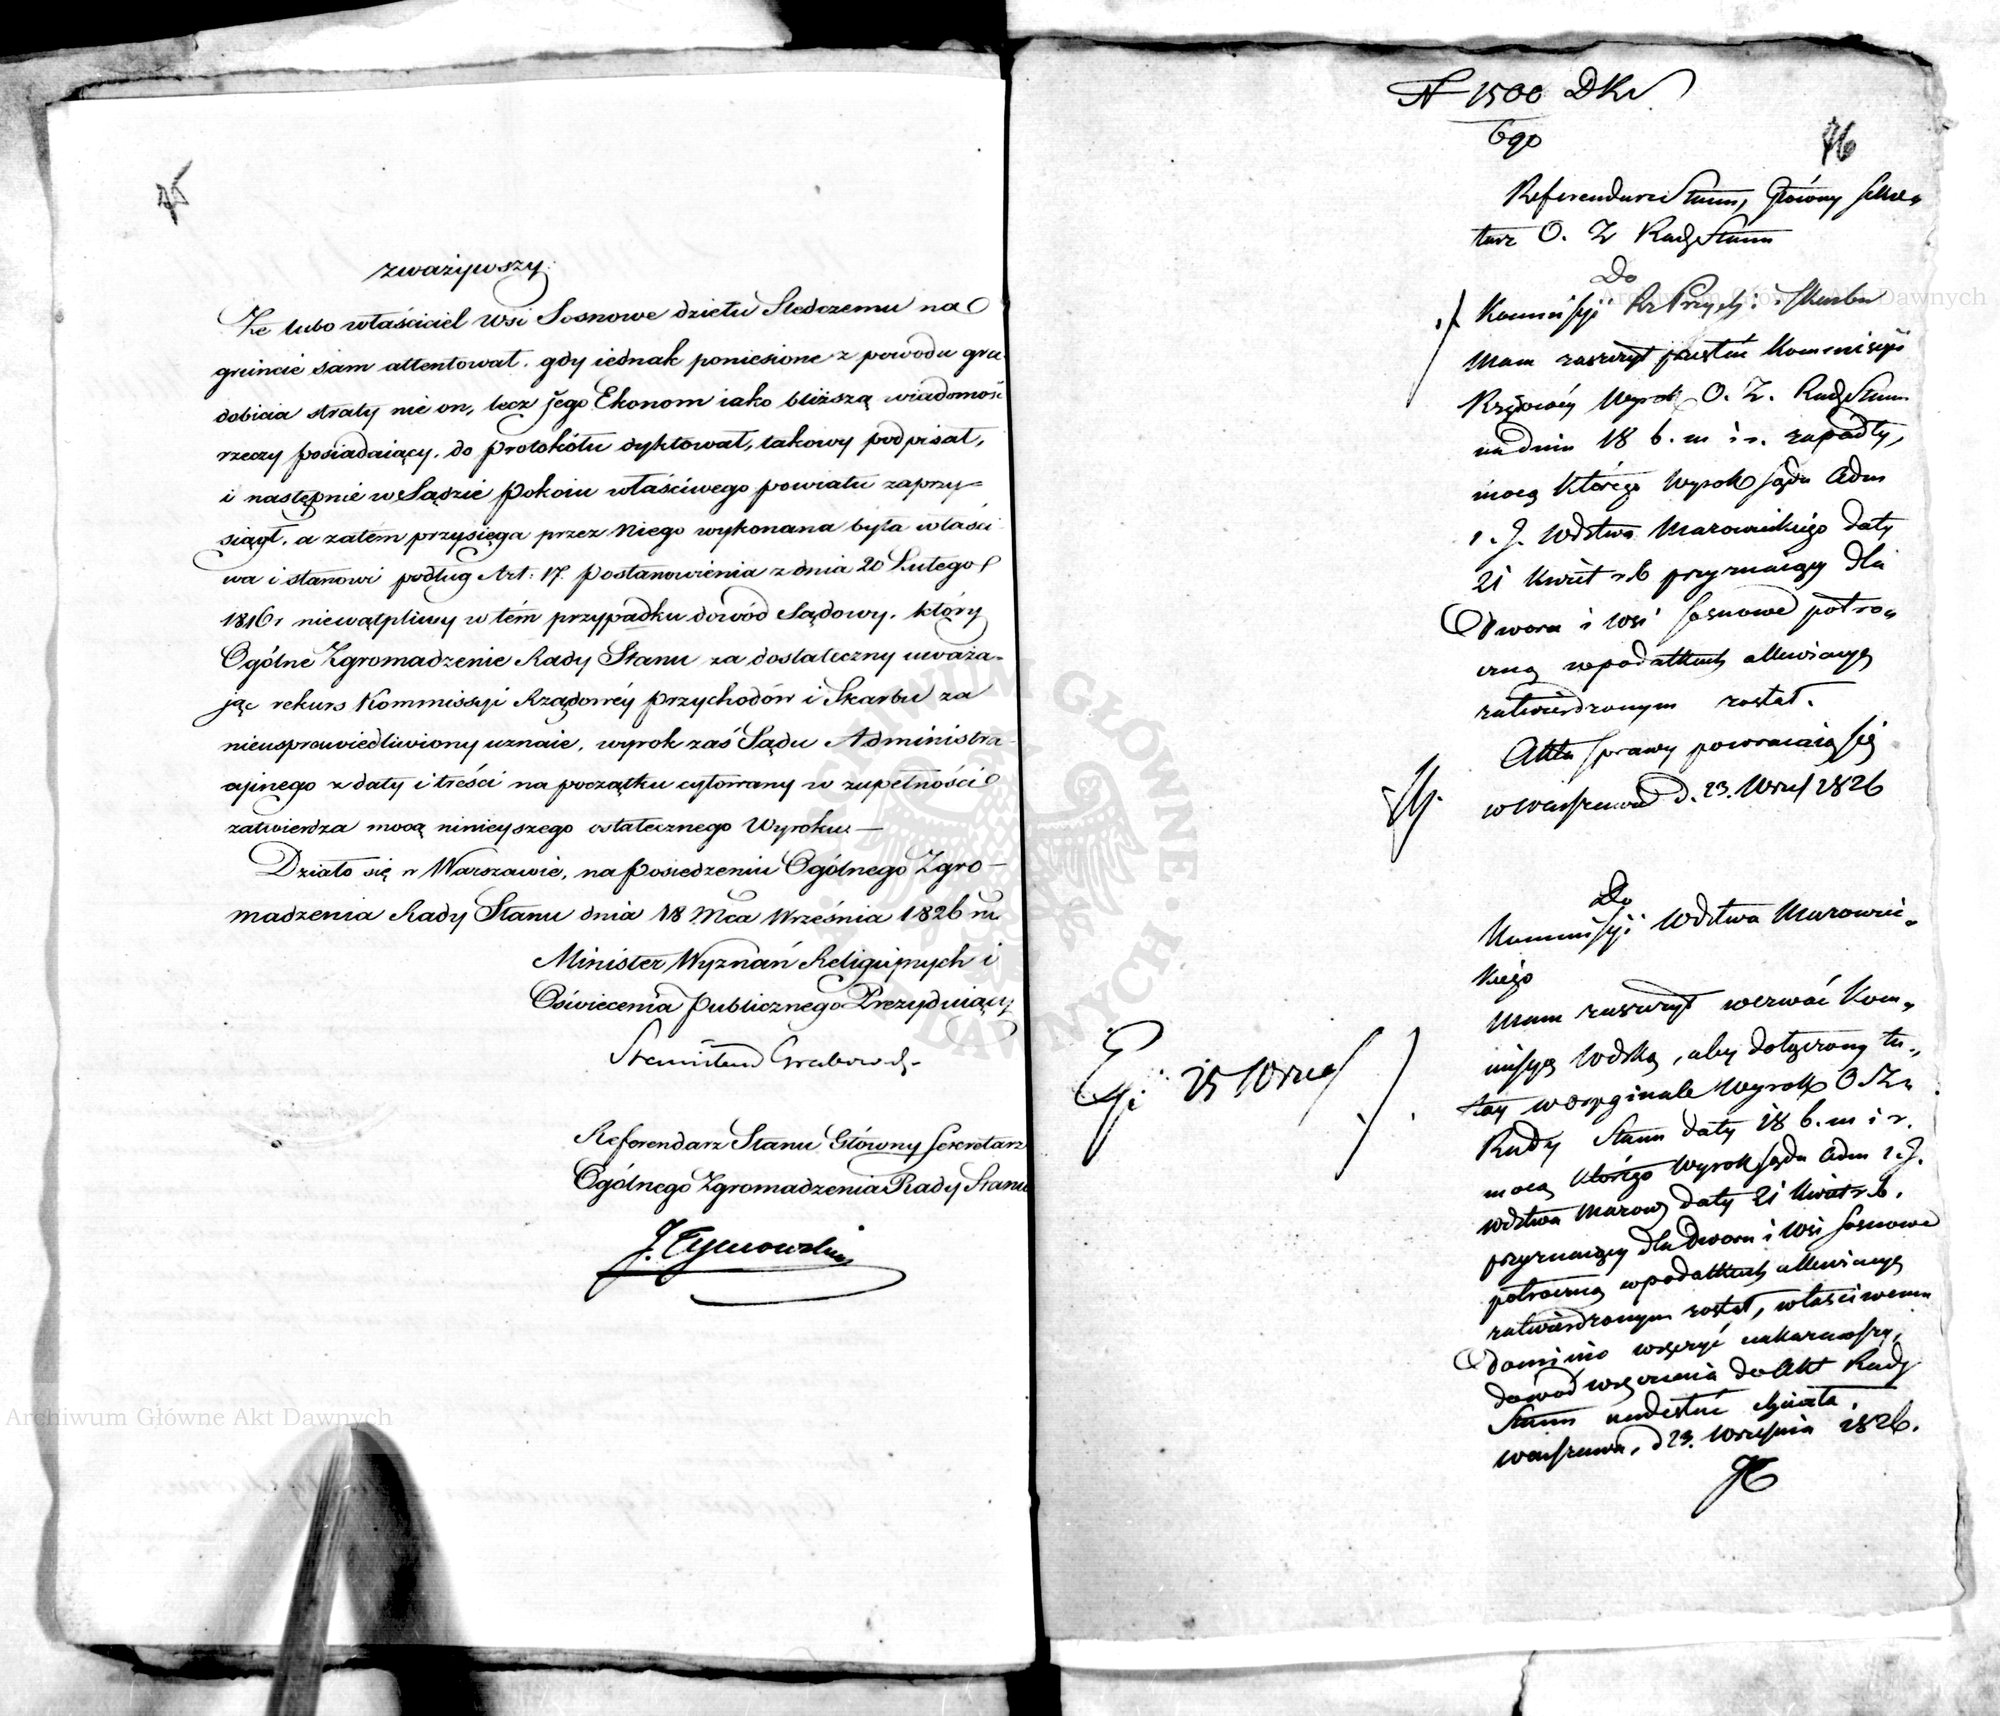 75
zważywszy:
Że lubo właściciel wsi Sosnowe dziełu Sledczemu na
gruncie sam attentował, gdy iednak poniesione z powodu gra
dobicia straty nie on, lecz jego Ekonom iako bliższą wiadomość
rzeczy posiadaiący, do protokółu dyktował, takowy podpisał,
i następnie w Sądzie Pokoiu właściwego powiatu zaprzy=
siągł, a zatém przysięga przez Niego wykonana była właści
wa i stanowi podług Art: 17. Postanowienia z dnia 20 Lutego
1816 r niewątpliwy w tém przypadku dowód Sądowy, który
Ogólne Zgromadzenie Rady Stanu za dostateczny uważa-
jąc rekurs Kommissyi Rządowéy Przychodów i Skarbu za
nieusprawiedliwiony uznaie, wyrok zaś Sądu Administra-
cyjnego z daty i treści na początku cytowany w zupełności
zatwierdza mocą ninieyszego ostatecznego Wyroku.—
Działo się w Warszawie, na Posiedzeniu Ogólnego Zgro-
madzenia Rady Stanu dnia 18 Mca Września 1826 r.
Minister Wyznań Religiynych i
Oświecenia Publicznego Prezyduiący
Stanisław Grabowski
Referendarz Stanu Główny Sekretarz
Ogólnego Zgromadzenia Rady Stanu
J. Tymowski
N 1500 DKs
6go
76
Referendarz Stanu, Główny Sekre=
tarz O. Z Rady Stanu
Do
Kommissyi Rz Przych: i Skarbu
Mam zaszczyt przesłać Kommissyi
Rządowéy Wyrok O. Z. Rady Stanu
na dniu 18 b. m i r. zapadły,
mocą którego Wyrok Sądu Adm
i. J. Wdztwa Mazowieckiego daty
21 Kwiet r. b przyznaiący dla
Dworu i Wsi Sosnowe półro=
czną w podatkach allewiacyą
zatwierdzonym został.
Akta sprawy powracaią się
w Warszawie d. 23. Wrześ 1826
Do
Kommissyi Wdztwa Mazowiec=
kiego
Mam zaszczyt wezwać Kom=
missyą Wdzką, aby dołączony tu=
tay w oryginale Wyrok O Zn
Rady Stanu daty 18 b. m i r.
mocą którego Wyrok Sądu Adm i. J.
Wdztwa Mazow daty 21 Kwiet r. b.
przyznaiący dla Dworu i Wsi Sosnowe
półroczną w podatkach allewiacyą
zatwierdzonym został, właściwemu
Dominio wręczyć nakazawszy,
dowód wręczenia do Akt Rady
Stanu nadesłać chciała.
Warszawa, d 23. Września 1826.
Ex: 25 Wrześ
Archiwum Główne Akt Dawnych
Archiwum Główne Akt Dawnych
ARCHIWUM GŁÓWNE AKT DAWNYCH